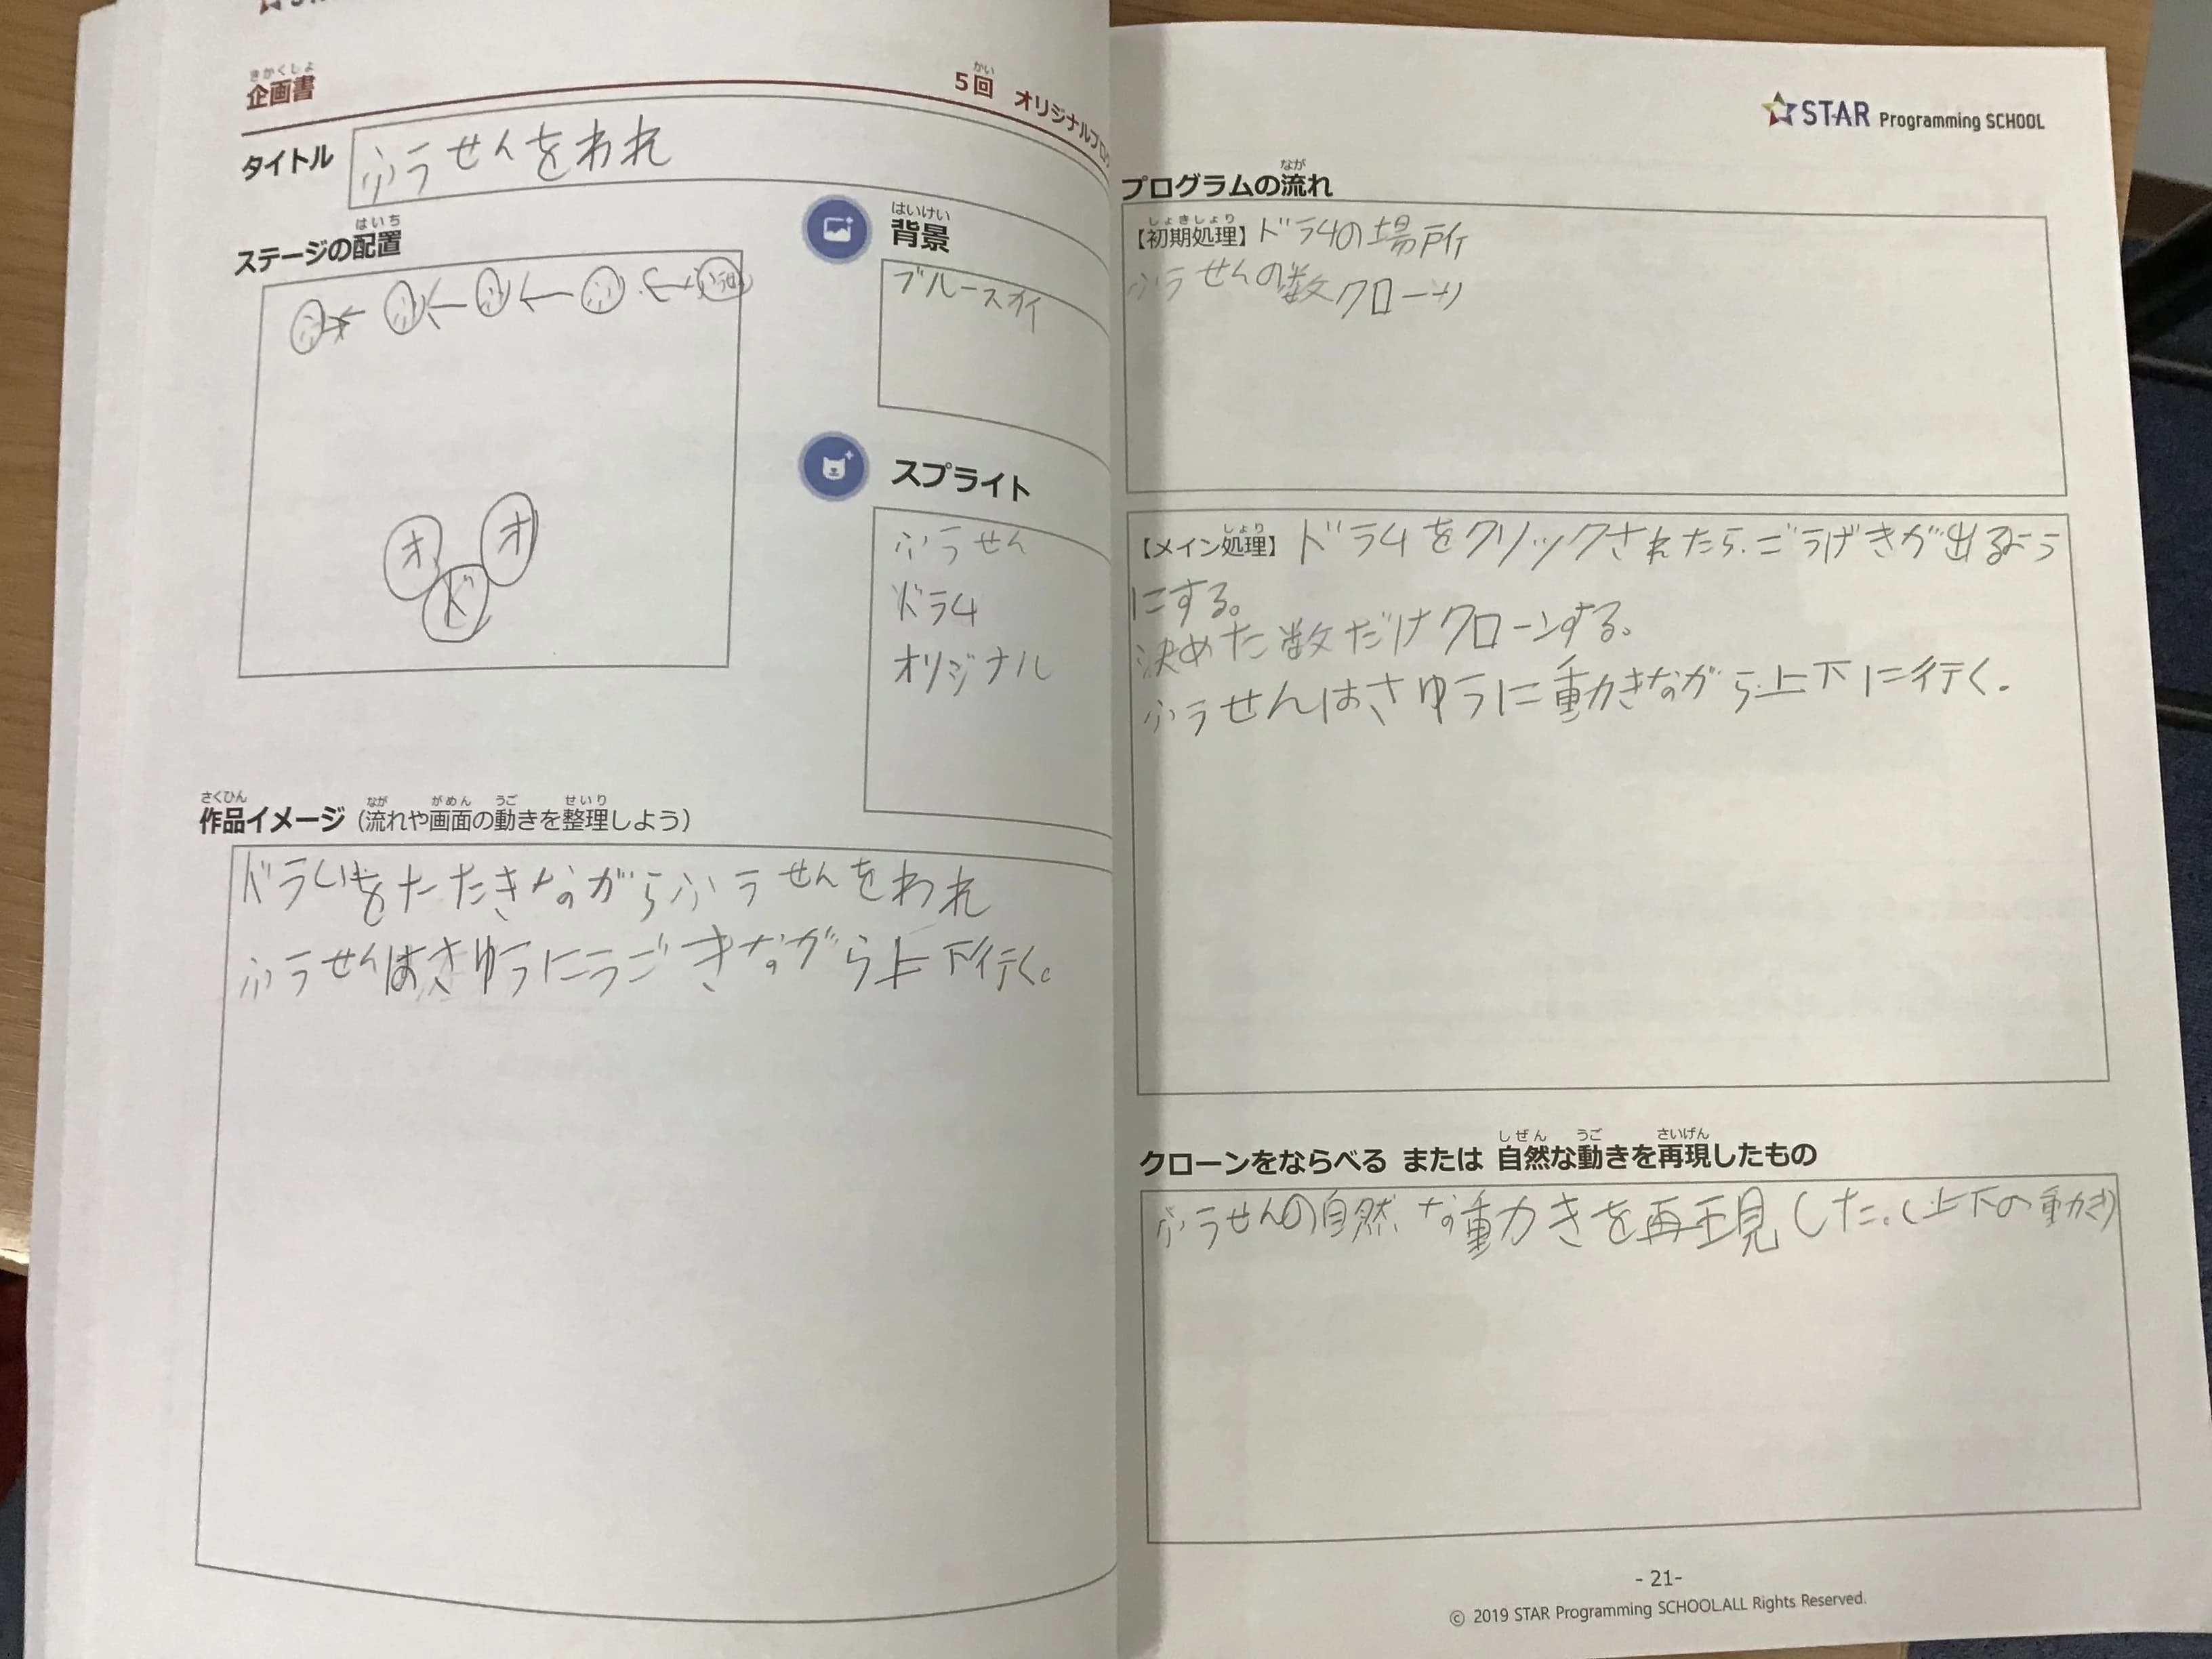 きかくしょ
企画書
かい
5回 オリジナルプログ
タイトル ふうせんをわれ
はいち
ステージの配置
ふ ふ ふ ふ ふうせん
オ オ
ド
はいけい
背景
ブルースカイ
スプライト
ふうせん
ドラム
オリジナル
さくひん なが がめん うご せいり
作品イメージ（流れや画面の動きを整理しよう）
ドラムをたたきながらふうせんをわれ
ふうせんはさゆうにうごきながら上下行く。
STAR Programming SCHOOL
なが
プログラムの流れ
しょきしょり
【初期処理】ドラムの場所
ふうせんの数クローン
しょり
【メイン処理】ドラムをクリックされたら、ごうげきが出るよう
にする。
決めた数だけクローンする。
ふうせんはさゆうに動きながら上下に行く。
しぜん うご さいげん
クローンをならべる または 自然な動きを再現したもの
ふうせんの自然な動きを再現した。（上下の動き）
- 21-
© 2019 STAR Programming SCHOOL.ALL Rights Reserved.